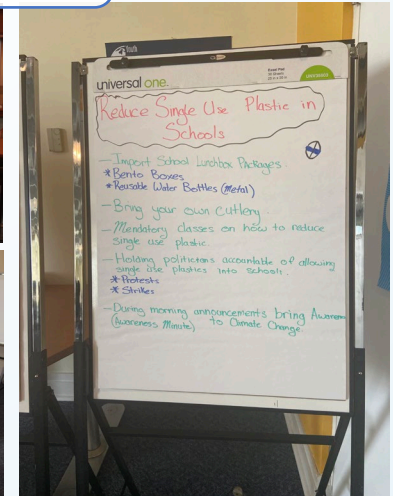 Youth
universal one.
Easel Pad
UNV35603
Reduce Single Use Plastic in
Schools
– Import School Lunchbox Packages.
* Bento Boxes
* Reusable Water Bottles (Metal)
– Bring your own Cutlery
– Mendatory classes on how to reduce
single use plastic.
– Holding politicians accountable of allowing
single use plastics into schools.
* Protests
* Strikes
– During morning announcements bring Awareness
(Awareness Minute) to Climate Change.